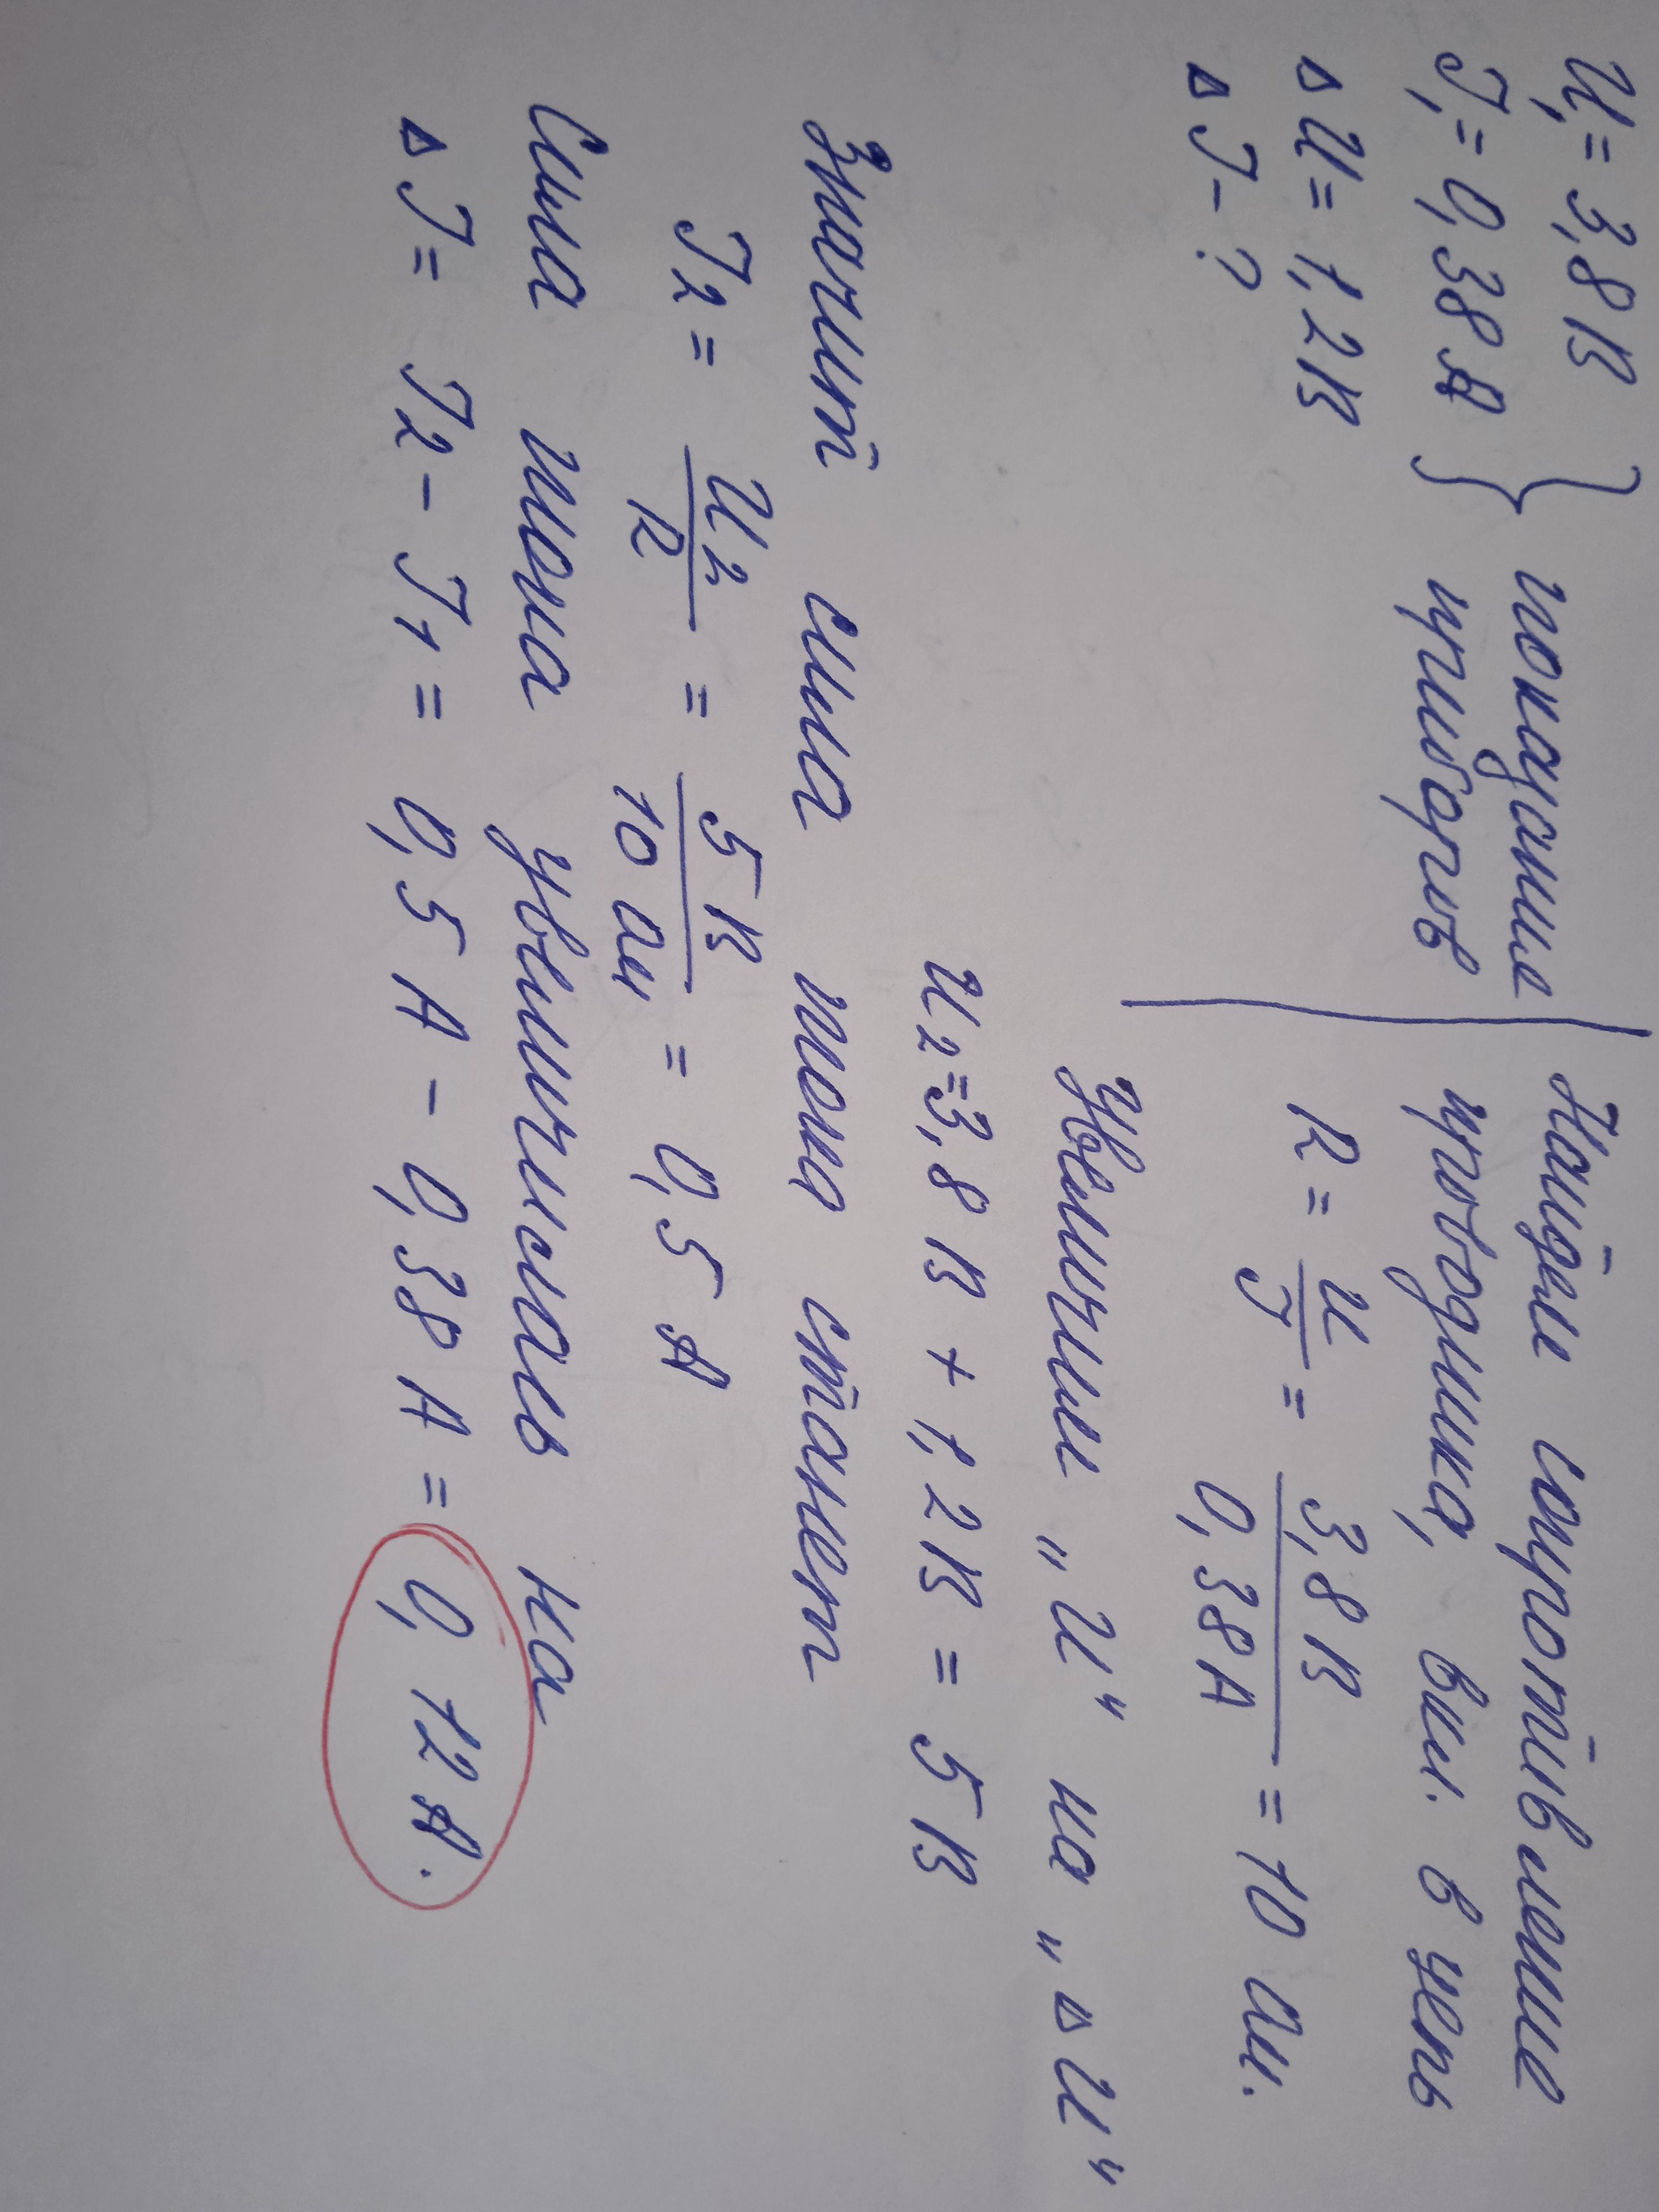 U₁ = 3,8 В } показание
J₁ = 0,38 А } приборов
Δ U = 1,2 В
Δ J - ?
Найдём сопротивление
проводника, вкл. в цепь
R = U/J = 3,8 В/0,38 А = 10 Ом.
Увеличим „U“ на „Δ U“
U₂ = 3,8 В + 1,2 В = 5 В
Значит сила тока станет
J₂ = U₂/R = 5 В/10 Ом = 0,5 А
Сила тока увеличилась на
Δ J = J₂ - J₁ = 0,5 А - 0,38 А = 0,12 А.